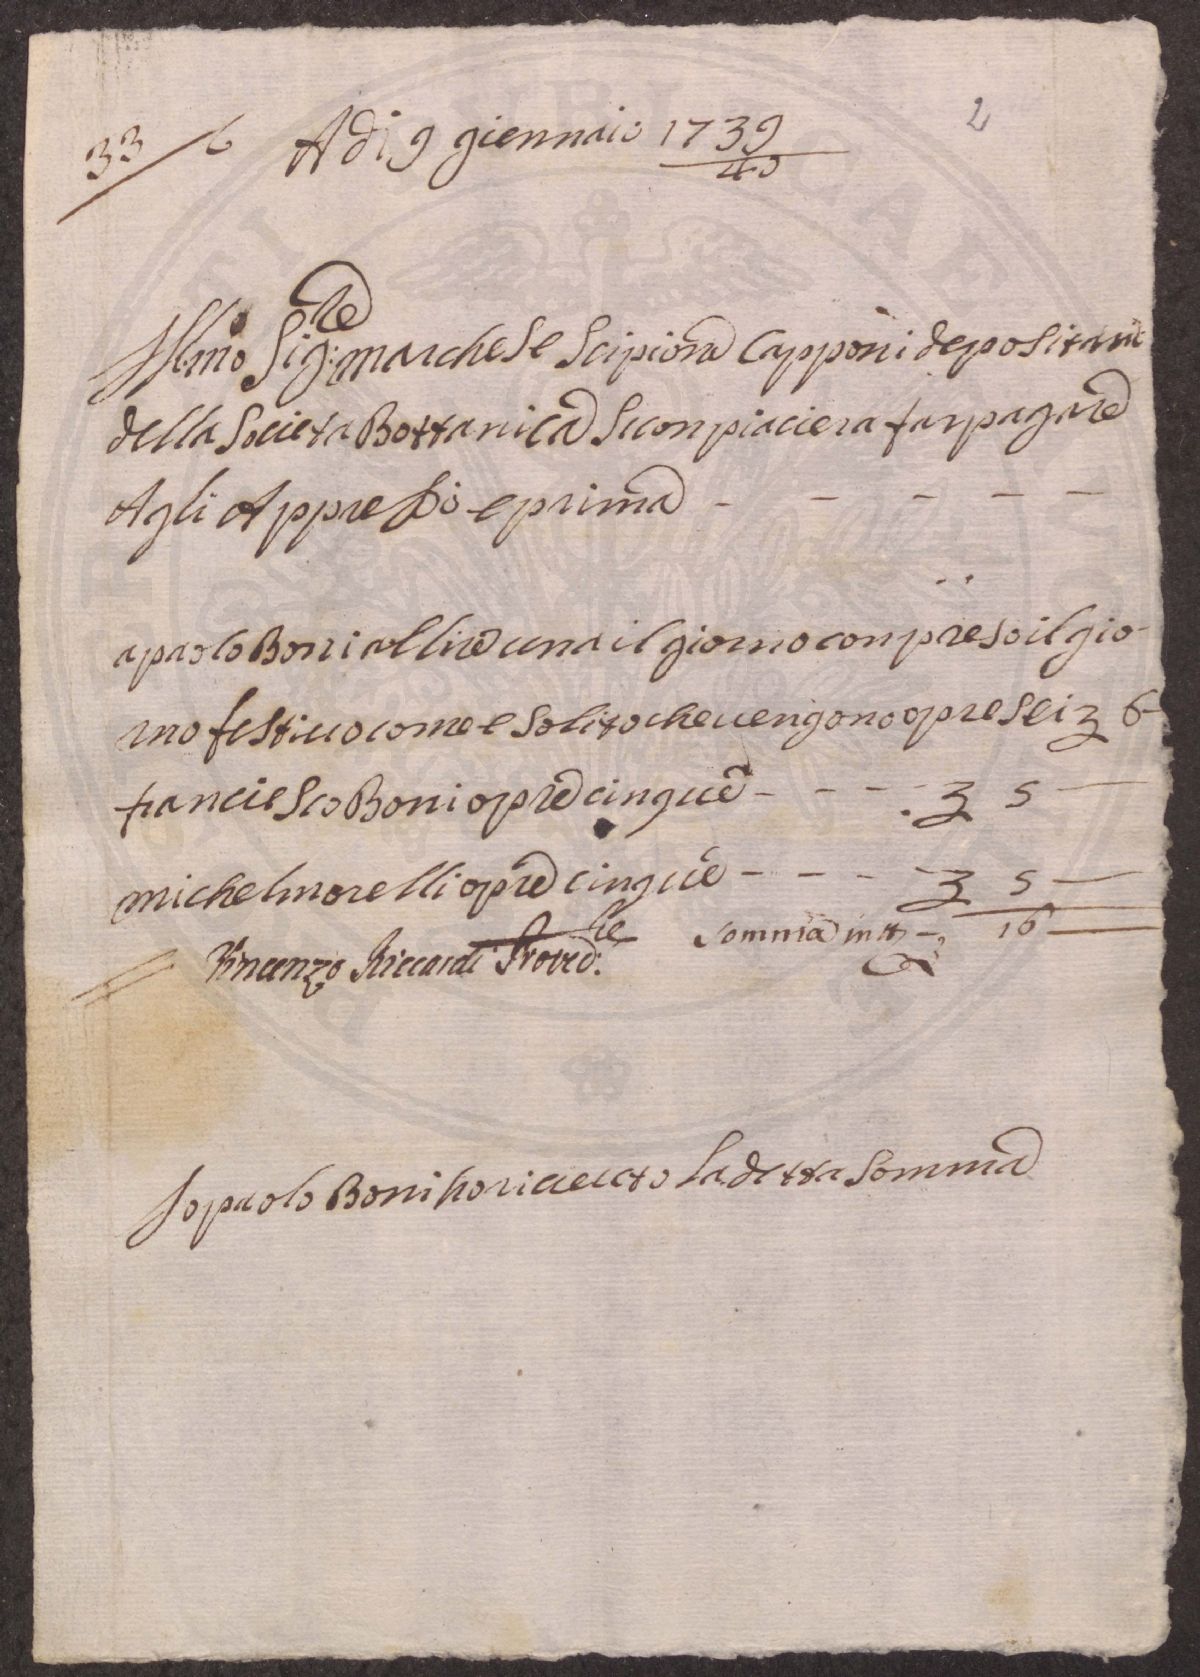 33/6 Adi 9 giennaio 1739/40 2
Ill:mo Sig:re marchese Scipione Capponi depositari
della Societa Bottanica Seconpiaciera farpagare
Agli Appresso e prima - - - - -
a paolo Boni a llire una il giorno conpreso il gio-
rno festiuo come e solito che uengono opre sei 3 6 -
franciesco Boni opre cinque - - - - 3 5 -
michel morelli opre cinque - - - - 3 5 -
Vincenzo Riccardi Proved:re somma in tt - 16 -
Io paolo Boni ho riceuto la detta somma